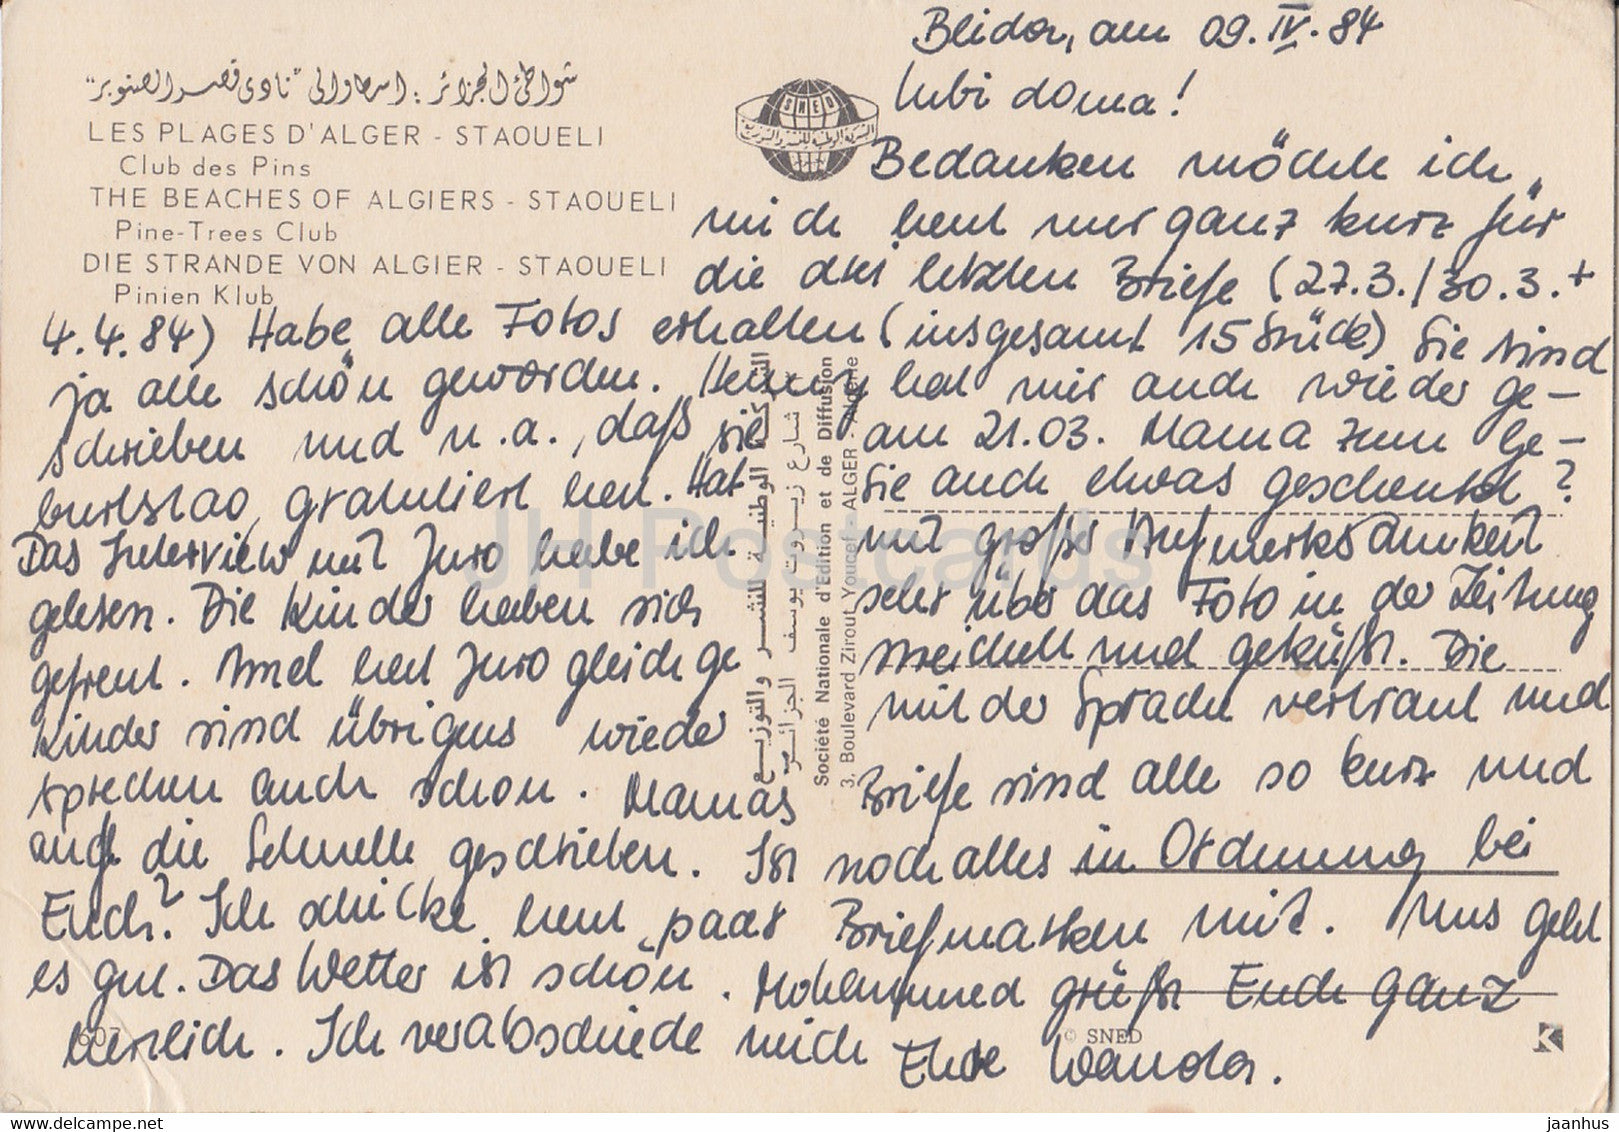 Blida, am 09. IV. 84
Lubi doma!
Bedanken möchte ich
mich heut nur ganz kurz für
die drei letzten Briefe (27.3./30.3.+
4.4.84) Habe alle Fotos erhalten (insgesamt 15 Stück) Sie sind
ja alle schön geworden. Henry hat mir auch wieder ge-
schrieben und u.a., daß sie am 21.03. Mama zum Ge-
burtstag gratuliert hat. Hat Sie auch etwas geschenkt?
Das Interview mit Juro habe ich mit großer Aufmerksamkeit
gelesen. Die Kinder haben sich sehr über das Foto in der Zeitung
gefreut. Amel hat Juro gleich ge streichelt und geküßt. Die
Kinder sind übrigens wieder mit der Sprache vertraut und
sprechen auch schon. Mamas Briefe sind alle so kurz und
auf die Schnelle geschrieben. Ist noch alles in Ordnung bei
Euch? Ich schicke heut paar Briefmarken mit. Uns geht
es gut. Das Wetter ist schön. Mohammed grüßt Euch ganz
herzlich. Ich verabschiede mich Eure Wanda.
شواطئ الجزائر : اسطاوالي "نادي قصر الصنوبر"
LES PLAGES D'ALGER - STAOUELI
Club des Pins
THE BEACHES OF ALGIERS - STAOUELI
Pine-Trees Club
DIE STRANDE VON ALGIER - STAOUELI
Pinien Klub
SNED
الشركة الوطنية للنشر والتوزيع
شارع زيروت يوسف الجزائر
Société Nationale d'Edition et de Diffusion
3, Boulevard Zirout Youcef - ALGER - Algérie
607
© SNED
K
JH Postcards
delcampe.net
jaanhus